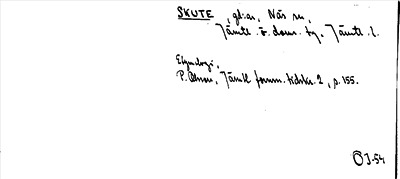 SKUTE, gl:ar, Näs sn,
Jämtl. ö. doms. by, Jämtl. l.
Etymologi,
P. Olsson, Jämtl. fornm. tidskr. 2, s. 155.
ÖJ-54